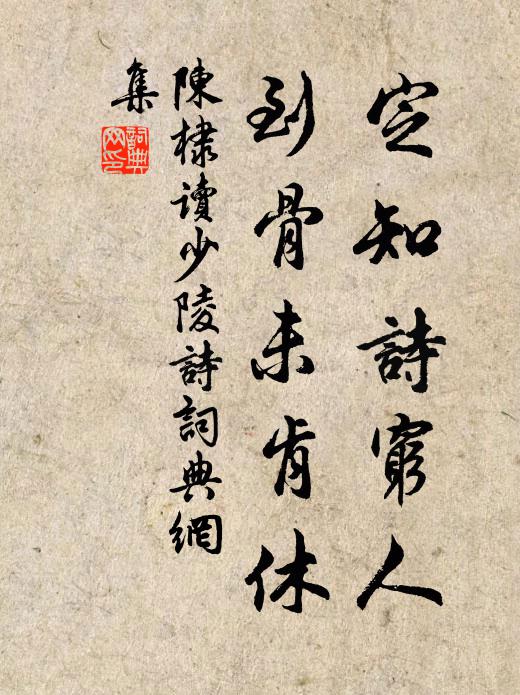 定知詩窮人
到骨未肯休
陳棣讀少陵詩詞典網
集
詞典網印